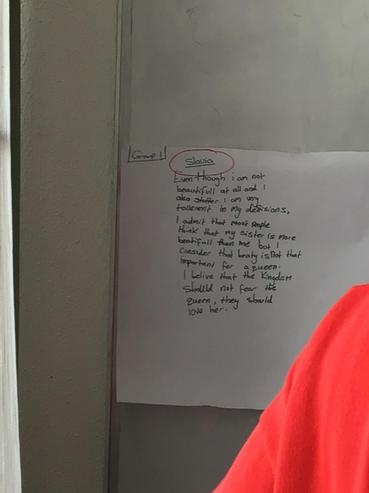 Group 1
Slavia
Even though i am not
beautifull at all and I
also stutter I am very
tollerent in my decisions,
I admit that most people
think that my sister is more
beatifull than me but I
consider that beaty is not that
important for a queen.
I belive that the Kingdom
should not fear the
queen, they should
love her.